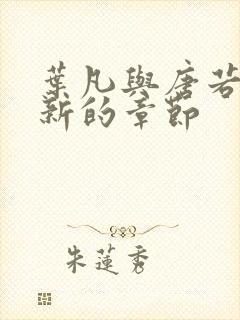 葉凡與唐若
新的章節
朱蓮秀